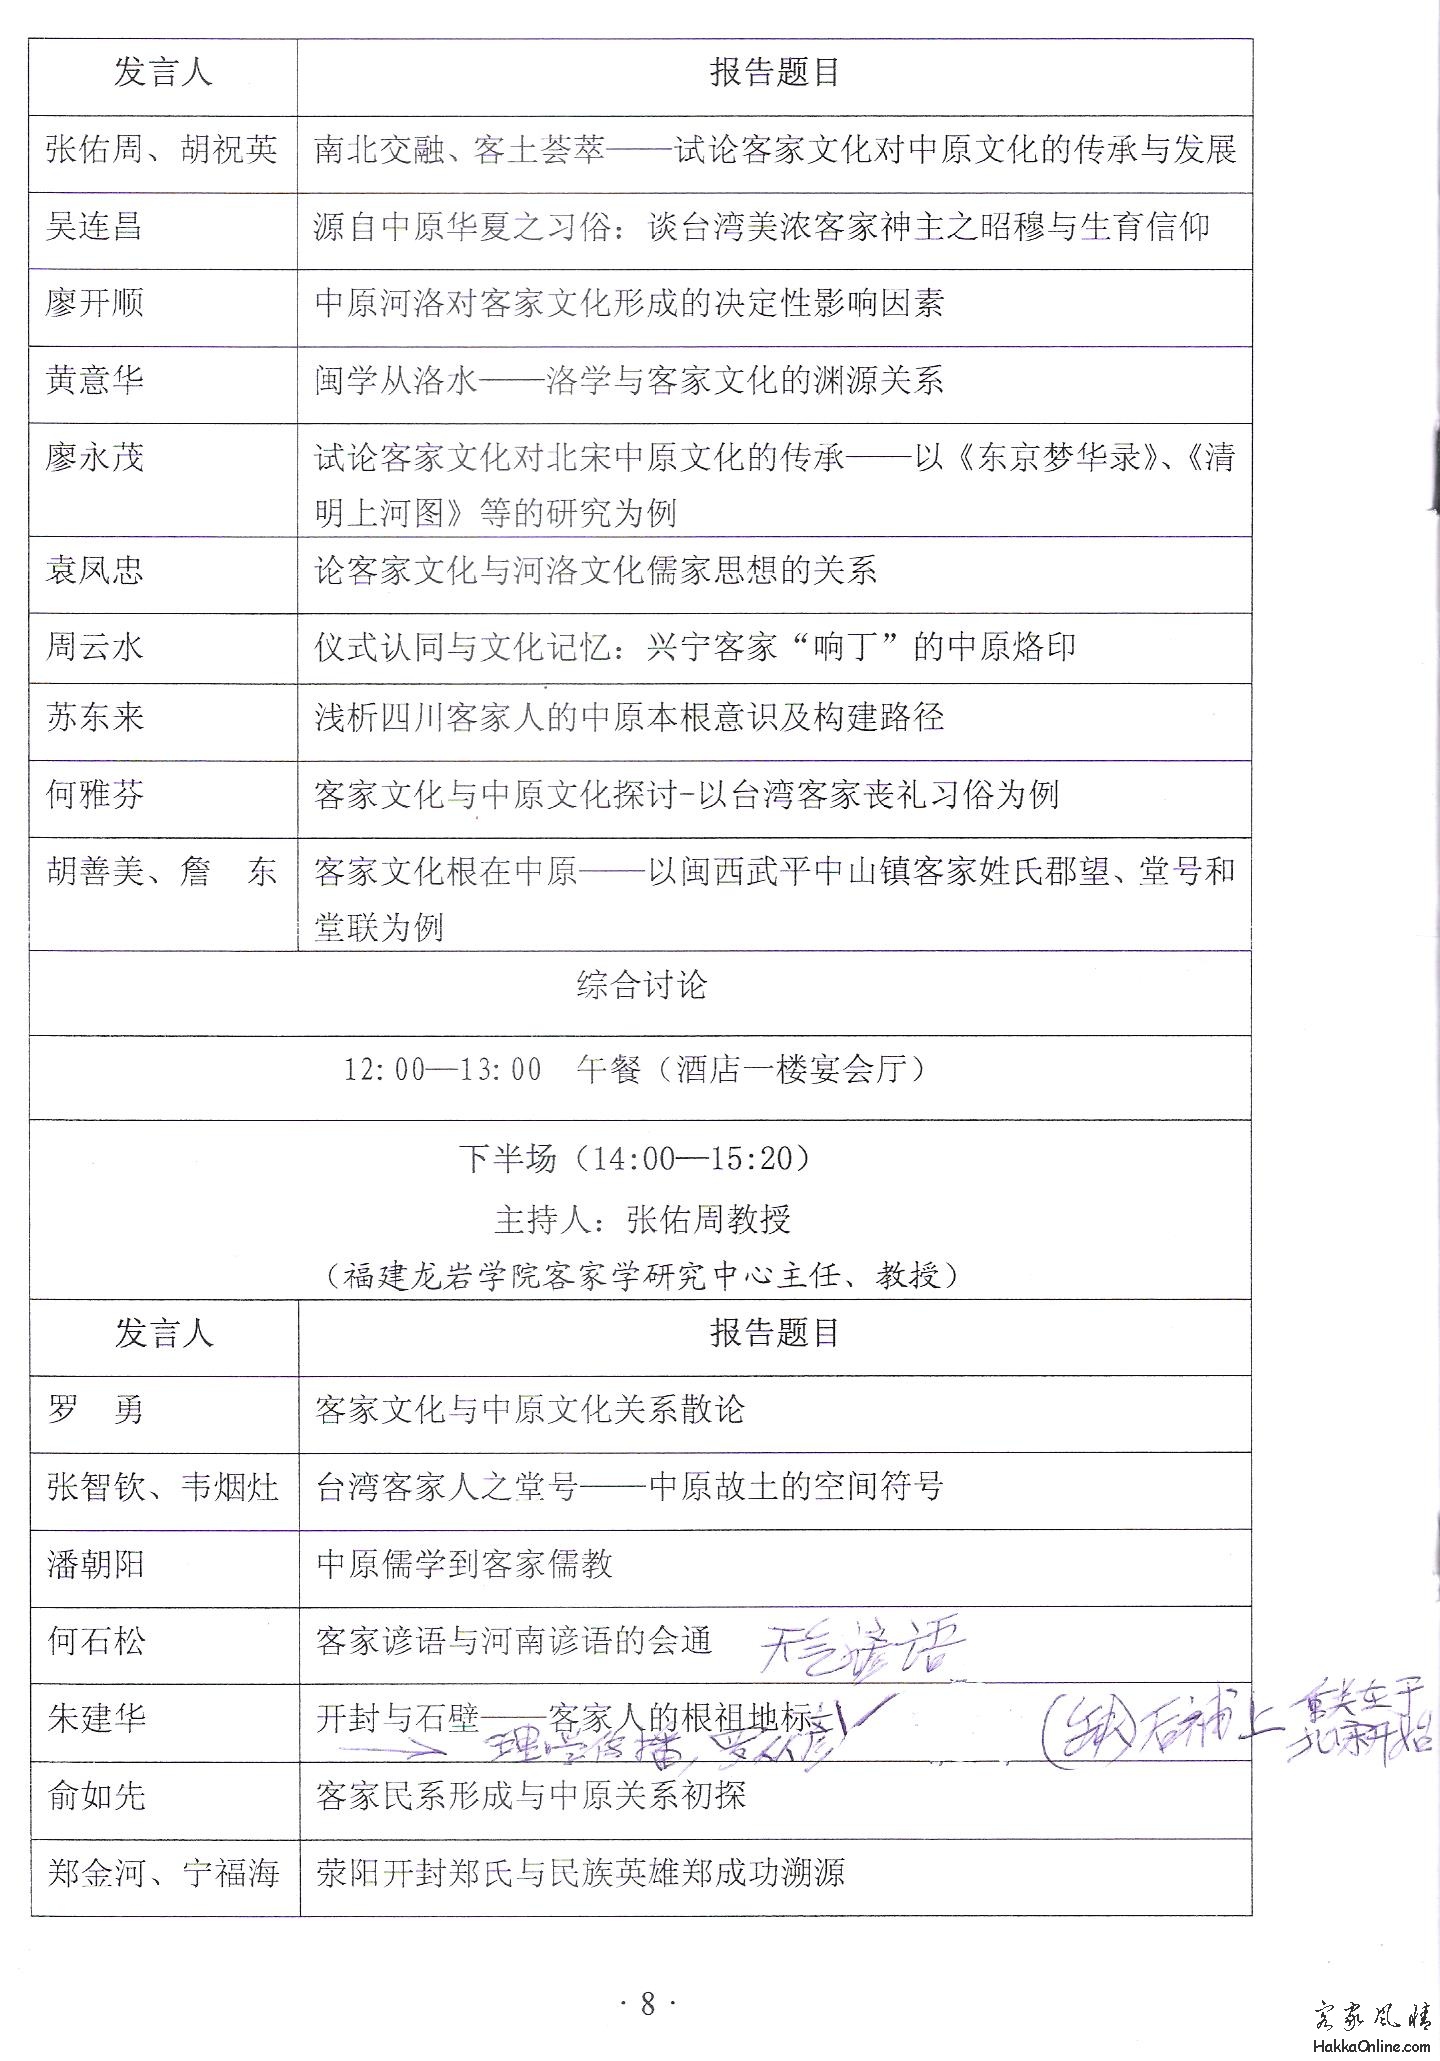 发言人 报告题目
张佑周、胡祝英 南北交融、客土荟萃——试论客家文化对中原文化的传承与发展
吴连昌 源自中原华夏之习俗：谈台湾美浓客家神主之昭穆与生育信仰
廖开顺 中原河洛对客家文化形成的决定性影响因素
黄意华 闽学从洛水——洛学与客家文化的渊源关系
廖永茂 试论客家文化对北宋中原文化的传承——以《东京梦华录》、《清
明上河图》等的研究为例
袁凤忠 论客家文化与河洛文化儒家思想的关系
周云水 仪式认同与文化记忆：兴宁客家“响丁”的中原烙印
苏东来 浅析四川客家人的中原本根意识及构建路径
何雅芬 客家文化与中原文化探讨-以台湾客家丧礼习俗为例
胡善美、詹　东 客家文化根在中原——以闽西武平中山镇客家姓氏郡望、堂号和
堂联为例
综合讨论
12:00—13:00　午餐（酒店一楼宴会厅）
下半场（14:00—15:20）
主持人：张佑周教授
（福建龙岩学院客家学研究中心主任、教授）
发言人 报告题目
罗　勇 客家文化与中原文化关系散论
张智钦、韦烟灶 台湾客家人之堂号——中原故土的空间符号
潘朝阳 中原儒学到客家儒教
何石松 客家谚语与河南谚语的会通 天气谚语
朱建华 开封与石壁——客家人的根祖地标
理学传播
俞如先 客家民系形成与中原关系初探
郑金河、宁福海 荥阳开封郑氏与民族英雄郑成功溯源
·8·
客家风情
HakkaOnline.com